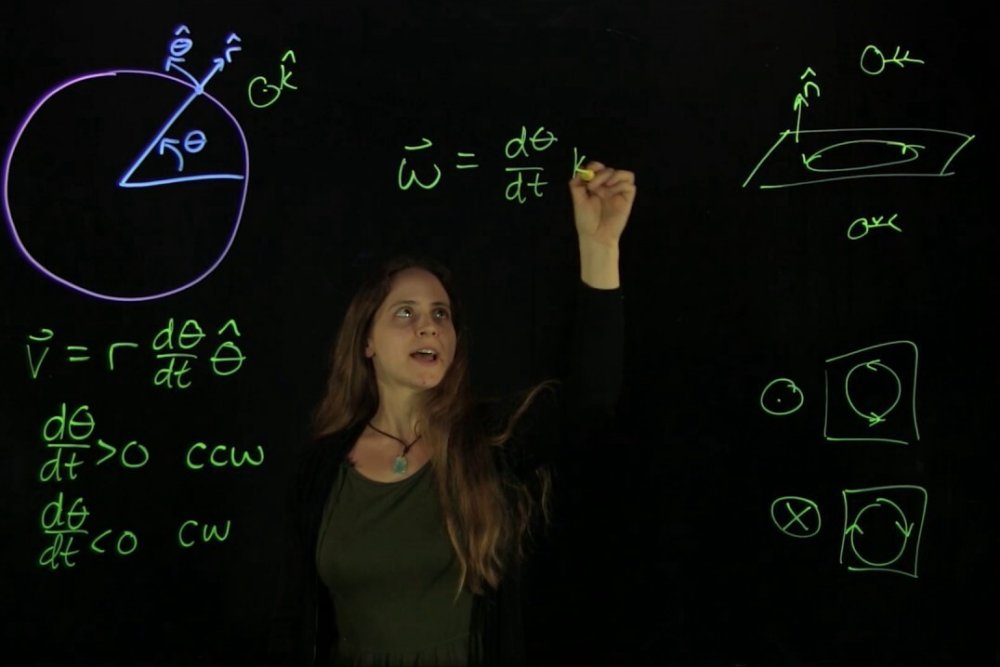 θ̂ r̂
k̂
θ
n̂
ω⃗ = dθ/dt k
v⃗ = r dθ/dt θ̂
dθ/dt >0 ccw
dθ/dt <0 cw